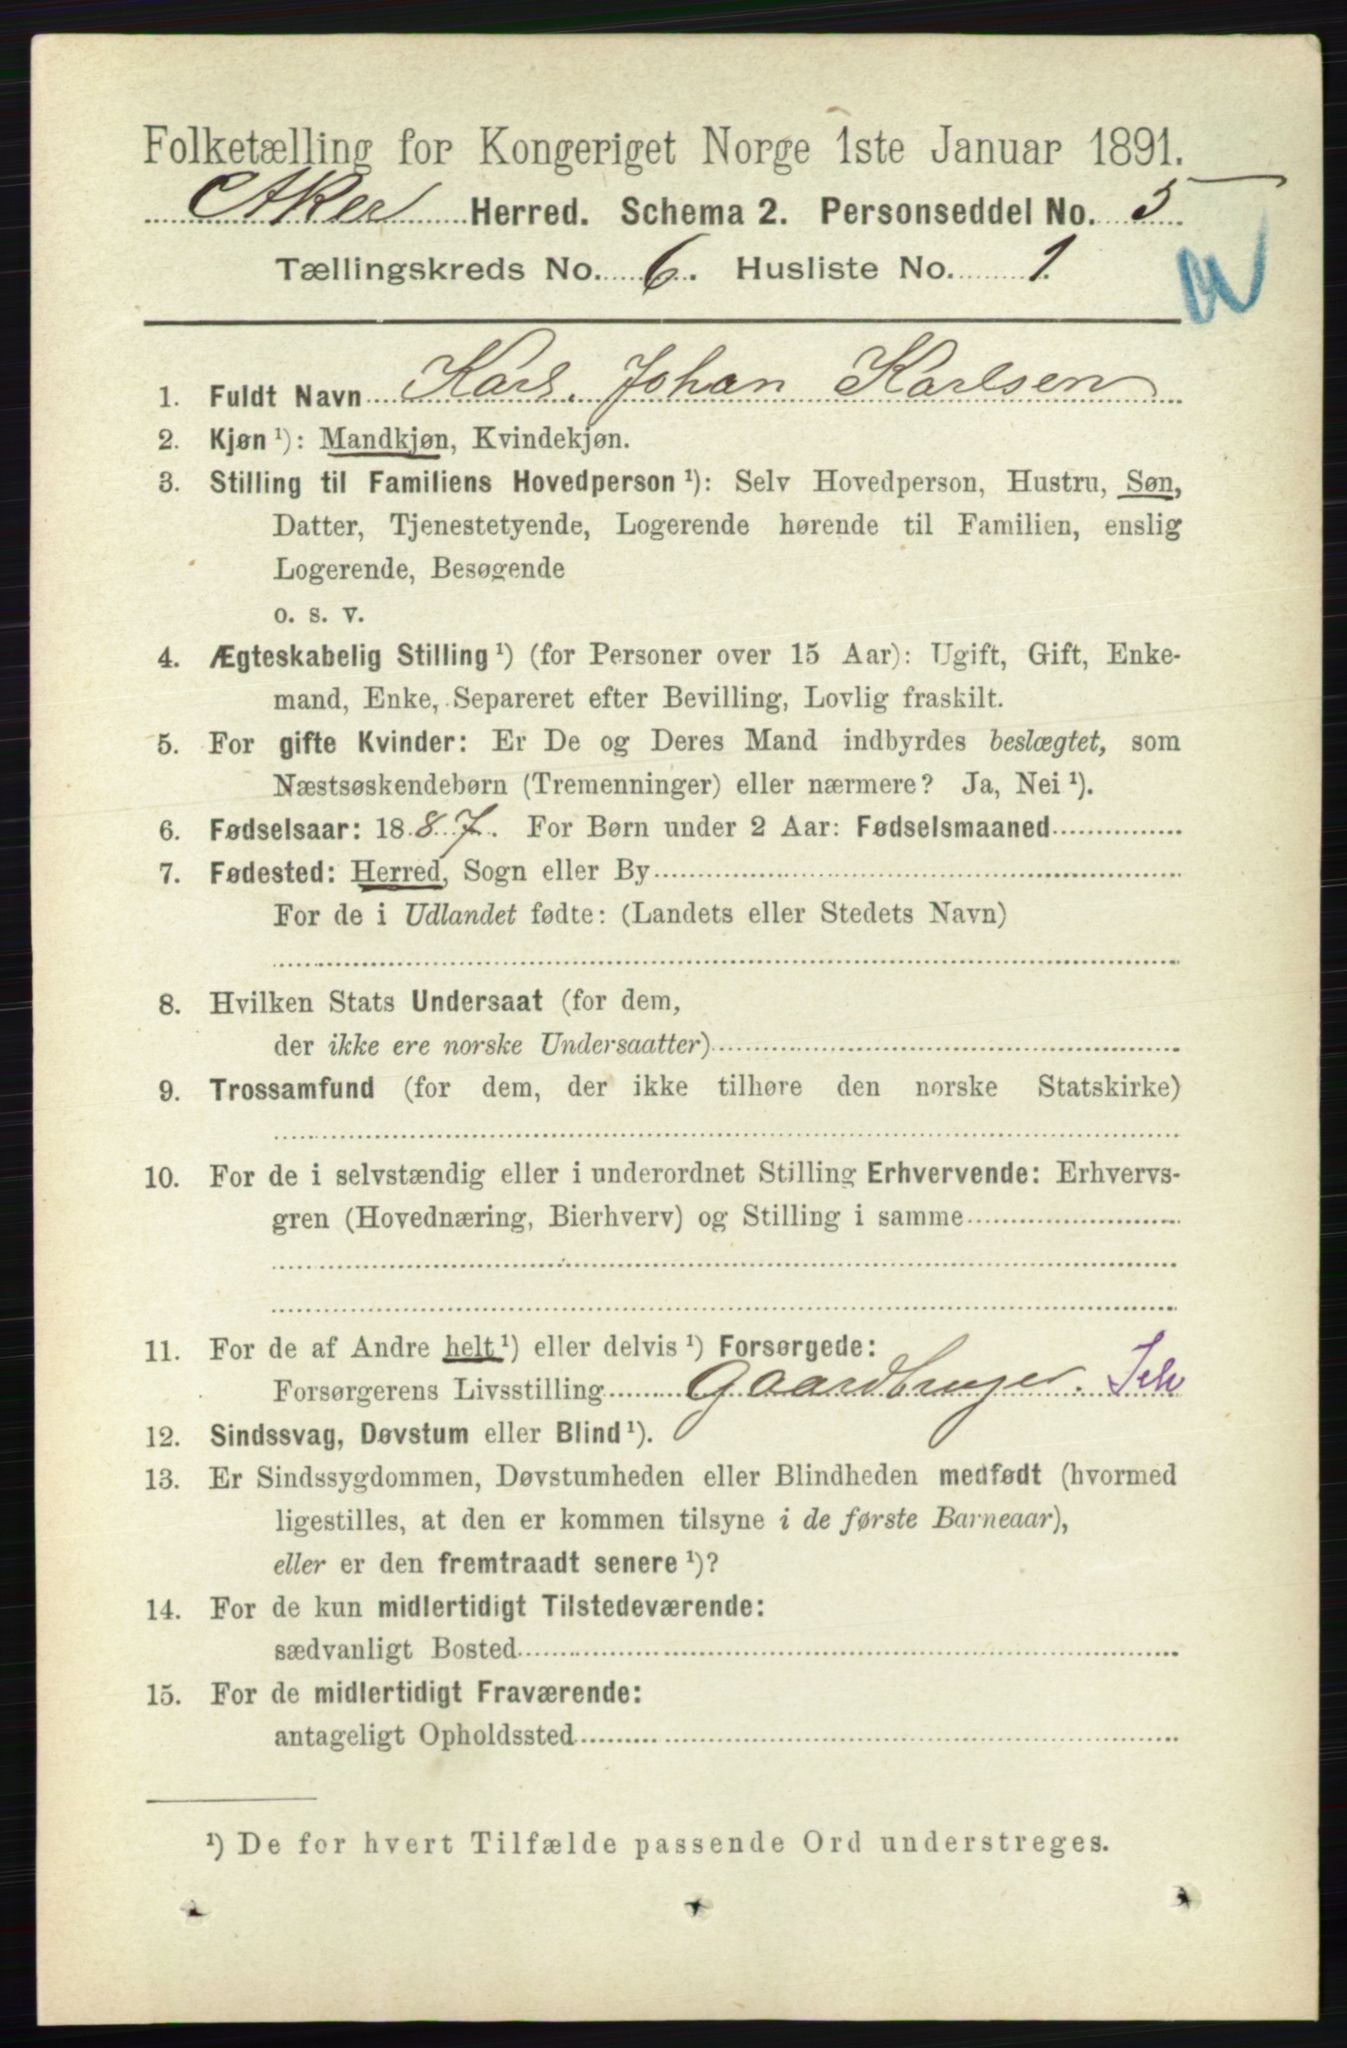 Folketælling for Kongeriget Norge 1ste Januar 1891.
Aker Herred. Schema 2. Personseddel No. 5
Tællingskreds No. 6. Husliste No. 1.
1. Fuldt Navn Karl Johan Karlsen
2. Kjøn ¹): Mandkjøn, Kvindekjøn.
3. Stilling til Familiens Hovedperson ¹): Selv Hovedperson, Hustru, Søn,
Datter, Tjenestetyende, Logerende hørende til Familien, enslig
Logerende, Besøgende
o. s. v.
4. Ægteskabelig Stilling ¹) (for Personer over 15 Aar): Ugift, Gift, Enke-
mand, Enke, Separeret efter Bevilling, Lovlig fraskilt.
5. For gifte Kvinder: Er De og Deres Mand indbyrdes beslægtet, som
Næstsøskendebørn (Tremenninger) eller nærmere? Ja, Nei ¹).
6. Fødselsaar: 1887. For Børn under 2 Aar: Fødselsmaaned
7. Fødested: Herred, Sogn eller By
For de i Udlandet fødte: (Landets eller Stedets Navn)
8. Hvilken Stats Undersaat (for dem,
der ikke ere norske Undersaatter)
9. Trossamfund (for dem, der ikke tilhøre den norske Statskirke)
10. For de i selvstændig eller i underordnet Stilling Erhvervende: Erhvervs-
gren (Hovednæring, Bierhverv) og Stilling i samme
11. For de af Andre helt ¹) eller delvis ¹) Forsørgede:
Forsørgerens Livsstilling Gaardbruger. Selv
12. Sindssvag, Døvstum eller Blind ¹).
13. Er Sindssygdommen, Døvstumheden eller Blindheden medfødt (hvormed
ligestilles, at den er kommen tilsyne i de første Barneaar),
eller er den fremtraadt senere ¹)?
14. For de kun midlertidigt Tilstedeværende:
sædvanligt Bosted
15. For de midlertidigt Fraværende:
antageligt Opholdssted
¹) De for hvert Tilfælde passende Ord understreges.